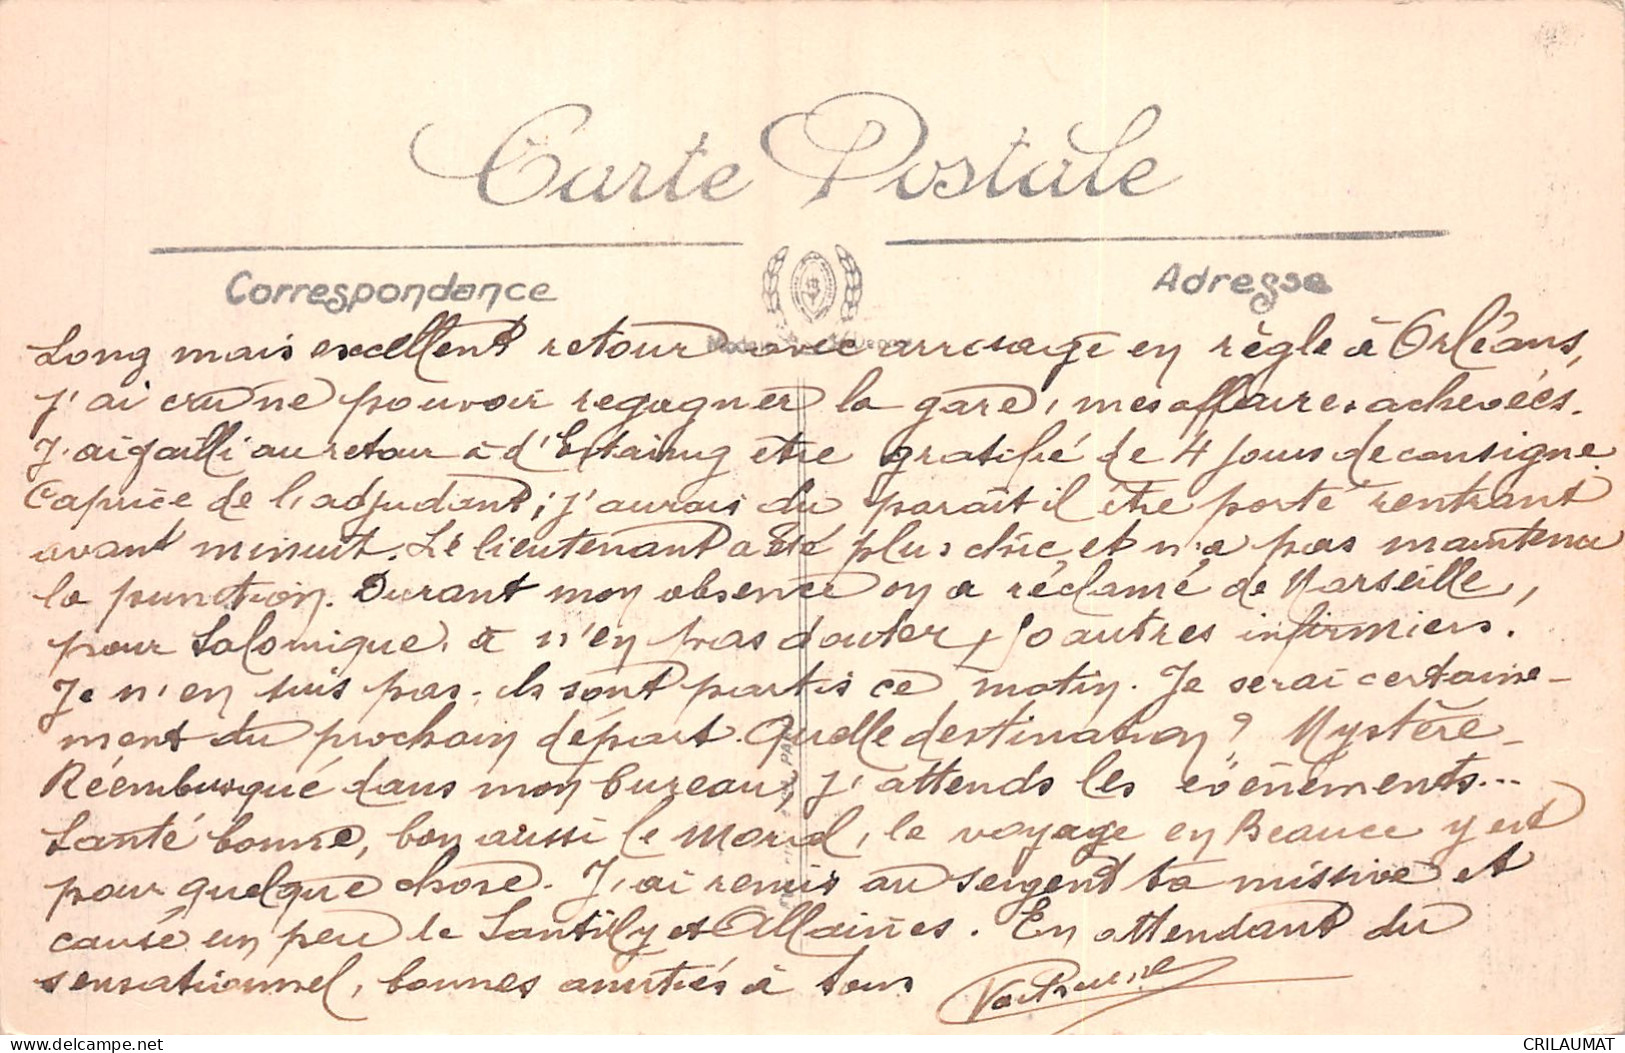 Carte Postale
Correspondance
Adresse
Long mais excellent retour avec arrosage en règle à Orléans,
J'ai cru ne pouvoir regagner la gare, mes affaires achevées.
J'ai failli au retour à d'Estaing etre gratifié de 4 jours de consigne.
Caprice de l'adjudant; j'aurais du paraît il être porté rentrant
avant minuit. Le lieutenant a été plus chic et n'a pas maintenu
la punction. Durant mon absence on a réclamé de Marseille,
pour Salonique, à n'en pas douter, 50 autres infirmiers.
Je n'en suis pas. Ils sont partis ce matin. Je serai certaine-
ment du prochain départ. Quelle destination? Mystère-
Réembusqué dans mon bureau, j'attends les evènements...
Santé bonne, bon aussi le moral, le voyage en Beauce y est
pour quelque chose. J'ai remis au sergent ta missive et
causé un peu de Santilly et Allaines. En attendant du
sensationnel, bonnes amitiés à tous
CRILAUMAT